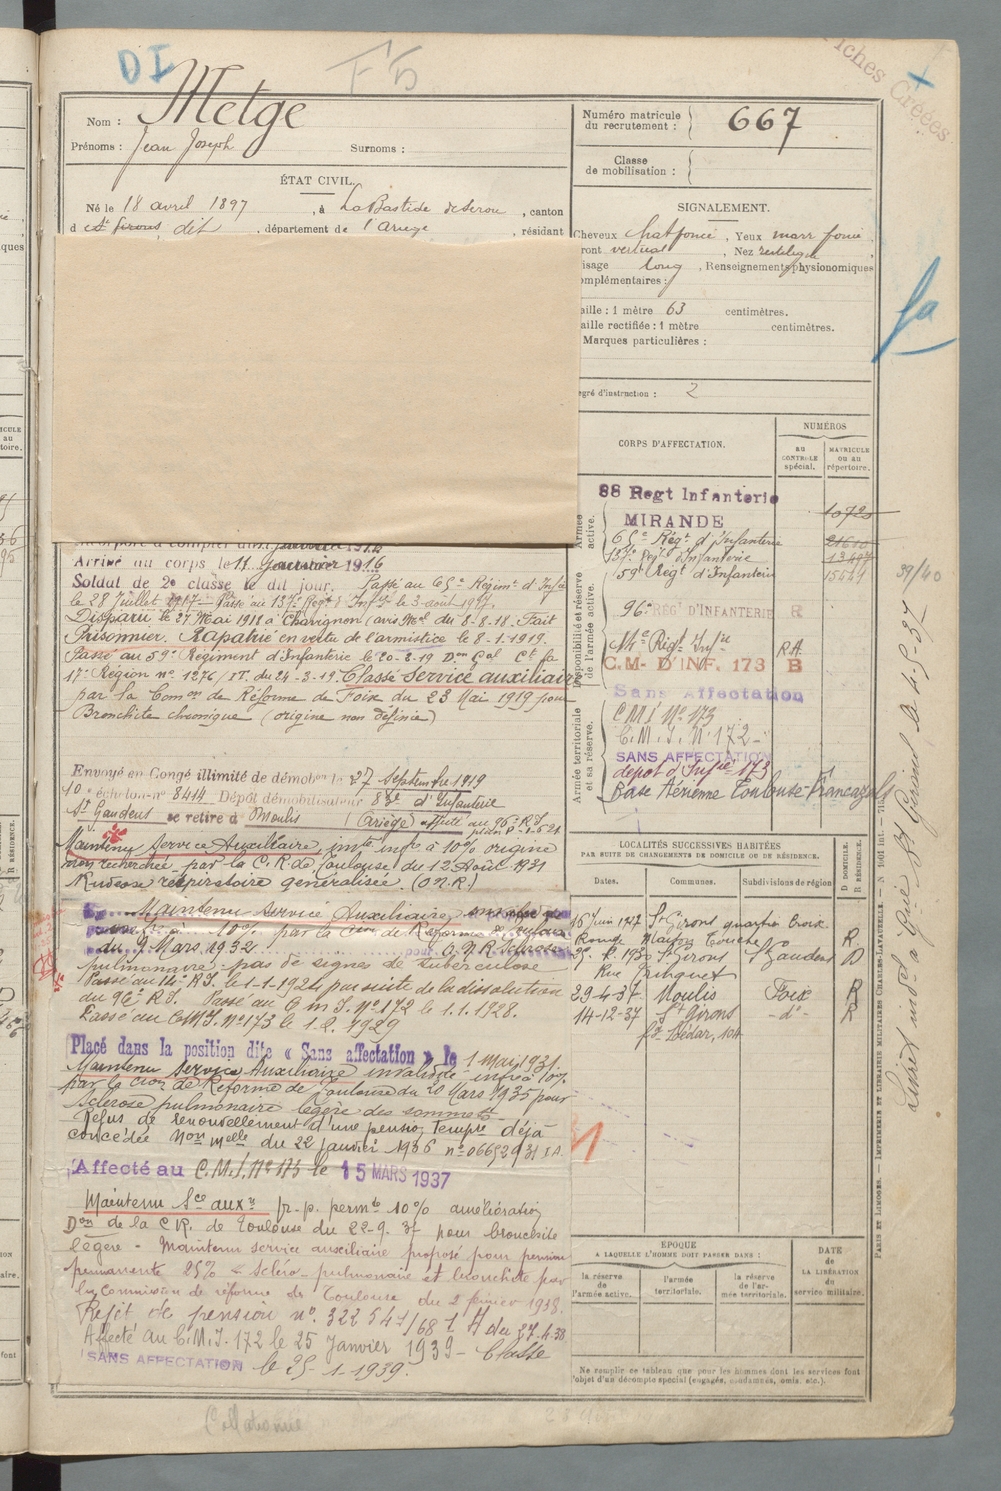 DI
F5
Fiches Créées
Nom : Metge
Prénoms : Jean Joseph Surnoms :
Numéro matricule du recrutement : 667
Classe de mobilisation :
ÉTAT CIVIL.
Né le 18 avril 1897, à La Bastide de Serou, canton
d dit, département de l'Ariège, résidant
SIGNALEMENT.
Cheveux chat foncé, Yeux marr foncé,
ront vertical, Nez rectiligne
isage long, Renseignements physionomiques
omplémentaires :
aille : 1 mètre 63 centimètres.
aille rectifiée : 1 mètre centimètres.
Marques particulières :
egré d'instruction : 2
fa
CORPS D'AFFECTATION.
NUMÉROS
AU CONTROLE spécial.
MATRICULE OU AU répertoire.
Armée active.
88 Regt Infanterie 10720
MIRANDE
65e Régt d'Infanterie 21610
137e Regt d'Infanterie 13497
59e Regt d'Infanterie 15449
Disponibilité et réserve de l'armée active.
96e REGt D'INFANTERIE R
14e Régt Infie RA
C.M. D'INF. 173 B
Sans Affectation
Armée territoriale et sa réserve.
C M I No 173
C.M.I. No 172
SANS AFFECTATION
dépot d'Infie 173
Base Aérienne Toulouse-Francazals
Arrivé au corps le 11 Janvier 1916
Soldat de 2e classe le dit jour. Passé au 65e Régimt d'Infie
le 28 Juillet 1917 - Passé au 137e Regt d'Infie le 3 août 1917.
Disparu le 27 Mai 1918 à Chavignon (avis Mel du 8-8-18. Fait
Prisonnier. Rapatrié en vertu de l'armistice le 8-1-1919.
Passé au 59e Régiment d'Infanterie le 20-2-19 Don Gal Ct la
17e Région no 1276/IT. du 24-3-19. Classé Service auxiliaire
par la Comon de Réforme de Foix du 23 Mai 1919 pour
Bronchite chronique (origine non définie)
Envoyé en Congé illimité de démobon le 27 Septembre 1919
10e échelon no 8414 Dépôt démobilisateur 83e d'Infanterie
St Gaudens se retire à Moulis (Ariège) affecté au 96e R.I.
Maintenu Service Auxiliaire, invté infre à 10% origine
non recherchée par la C.R. de Toulouse du 12 Août 1921
Rudesse respiratoire généralisée. (O.N.R.)
Maintenu Service Auxiliaire
10% par la Cion de Réforme de
du 9 Mars 1932 pour O.N.R Sclérose
pulmonaire : pas de signes de tuberculose
Passé au 14e R.I. le 1-1-1924 par suite de la dissolution
du 96e R.I. Passé au C M I. No 172 le 1.1.1928.
Passé au CMI. No 173 le 1.2.1929
Placé dans la position dite « Sans affectation » le 1 Mai 1931.
Maintenu Service Auxiliaire invalidité infre à 10%
par la cion de Réforme de Toulouse du 20 Mars 1935 pour
Sclérose pulmonaire légère des sommets
Refus de renouvellement d'une pension tempre déjà
concédée Non melle du 22 Janvier 1936
Affecté au C.M.I. No 173 le 15 MARS 1937
Maintenu Sce auxre pr. p. permte 10% amélioration
Don de la C.R. de Toulouse du 22-9-37 pour bronchite
légère - Maintenu service auxiliaire proposé pour pension
permanente 25% scléro-pulmonaire et bronchite par
la commission de réforme de Toulouse du 2 février 1938.
Rejet de pension no 322541/681 H du 27.4.38
Affecté au C.M.I. 172 le 25 Janvier 1939 - Classé
SANS AFFECTATION le 25-1-1939.
LOCALITÉS SUCCESSIVES HABITÉES
PAR SUITE DE CHANGEMENTS DE DOMICILE OU DE RÉSIDENCE.
Dates. Communes. Subdivisions de région
D DOMICILE. R RÉSIDENCE.
16 Juin 1927 St Girons quartier Croix
Rouge Maison Touche R
1930 St Girons St Gaudens D
Rue Trinquet
29-4-37 Moulis Foix R
14-12-37 St Girons -do- R
fg Lédar, 104
ÉPOQUE
A LAQUELLE L'HOMME DOIT PASSER DANS :
la réserve de l'armée active.
l'armée territoriale.
la réserve de l'armée territoriale.
DATE de LA LIBÉRATION du service militaire.
Ne remplir ce tableau que pour les hommes dont les services font
l'objet d'un décompte spécial (engagés, condamnés, omis, etc.).
PARIS ET LIMOGES. — IMPRIMERIE ET LIBRAIRIE MILITAIRES CHARLES-LAVAUZELLE.
39/40